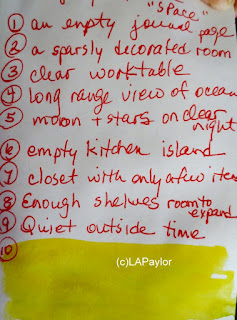 "space"
① an empty journal page
② a sparsly decorated room
③ clear worktable
④ long range view of ocean
⑤ moon + stars on clear
night
⑥ empty kitchen island
⑦ closet with only a few item
⑧ Enough shelves room to
expand
⑨ Quiet outside time
⑩
(c)LAPaylor